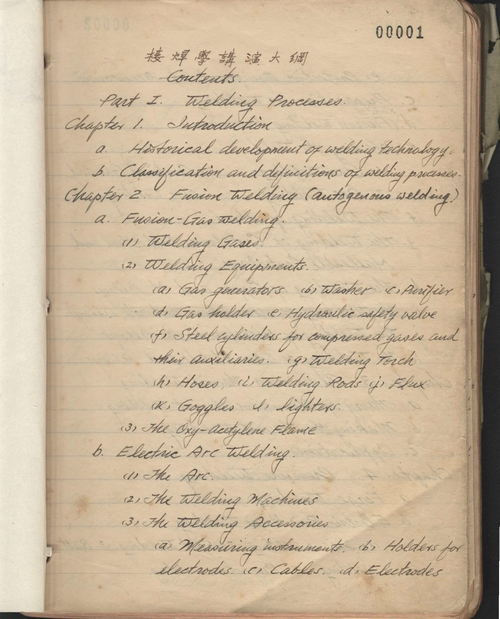 00001
接焊學講演大綱
Contents.
Part I. Welding Processes.
Chapter 1. Introduction
a. Historical development of welding technology.
b. Classification and definitions of welding processes.
Chapter 2 Fusion Welding (autogenous welding)
a. Fusion-Gas Welding.
(1) Welding Gases
(2) Welding Equipments
(a) Gas generators (b) Washer (c) Purifier
(d) Gas holder (e) Hydraulic safety valve
(f) Steel cylinders for compressed gases and
their auxiliaries. (g) Welding Torch
(h) Hoses (i) Welding Rods (j) Flux
(k) Goggles (l) lighters.
(3) The Oxy-acetylene Flame
b. Electric Arc Welding.
(1) The Arc
(2) The Welding Machines
(3) The Welding Accessories
(a) Measuring instruments. (b) Holders for
electrodes (c) Cables. (d) Electrodes